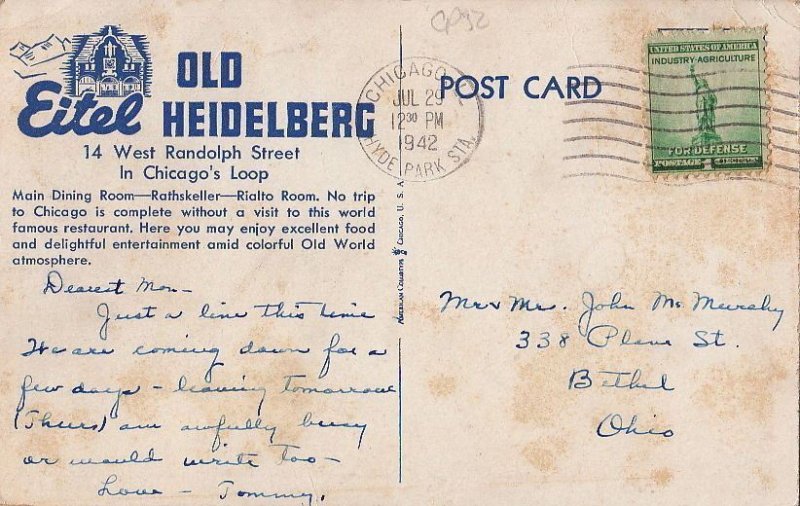 CP52
OLD
Eitel HEIDELBERG
14 West Randolph Street
In Chicago's Loop
Main Dining Room—Rathskeller—Rialto Room. No trip
to Chicago is complete without a visit to this world
famous restaurant. Here you may enjoy excellent food
and delightful entertainment amid colorful Old World
atmosphere.
CHICAGO
JUL 29
12 30 PM
1942
HYDE PARK STA.
POST CARD
UNITED STATES OF AMERICA
INDUSTRY-AGRICULTURE
FOR DEFENSE
POSTAGE 1 CENT
Dearest Mom-
Just a line this time
We are coming down for a
few days - leaving tomorrow
(Thurs) am awfully busy
or would write too-
Love - Tommy.
CHICAGO, U. S. A.
Mr & Mr. John Mc Murchy
338 Plane St.
Bethel
Ohio